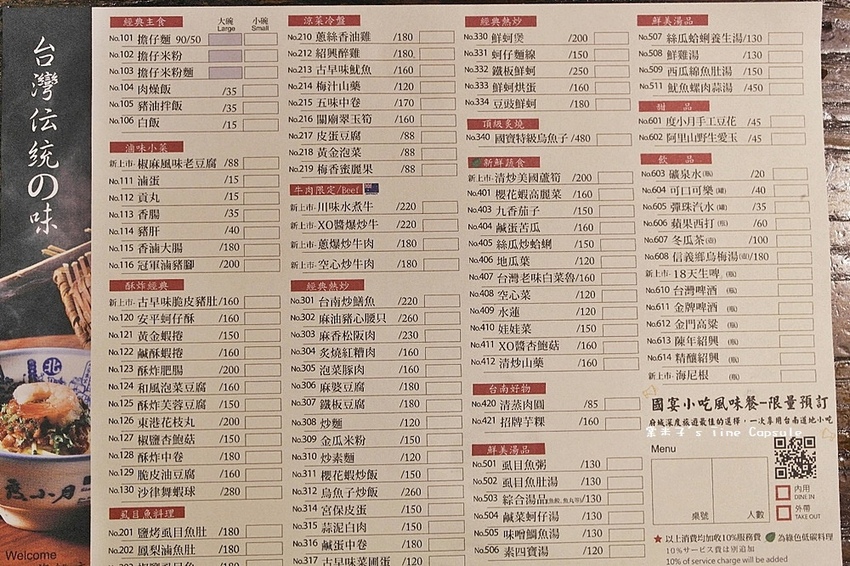 台灣伝統の味
Welcome
經典主食 大碗 Large 小碗 Small
No.101 擔仔麵 90/50
No.102 擔仔米粉
No.103 擔仔米粉麵
No.104 肉燥飯 /35
No.105 豬油拌飯 /35
No.106 白飯 /15
滷味小菜
新上市· 椒麻風味老豆腐 /88
No.111 滷蛋 /15
No.112 貢丸 /15
No.113 香腸 /35
No.114 豬肝 /40
No.115 香滷大腸 /180
No.116 冠軍滷豬腳 /200
酥炸經典
新上市· 古早味脆皮豬肚/160
No.120 安平蚵仔酥 /160
No.121 黃金蝦捲 /150
No.122 鹹酥蝦捲 /160
No.123 酥炸肥腸 /200
No.124 和風泡菜豆腐 /160
No.125 酥炸芙蓉豆腐 /150
No.126 東港花枝丸 /200
No.127 椒鹽杏鮑菇 /150
No.128 酥炸中卷 /180
No.129 脆皮油豆腐 /160
No.130 沙律舞蝦球 /280
虱目魚料理
No.201 鹽烤虱目魚肚 /180
No.202 鳳梨滷魚肚 /180
涼菜冷盤
No.210 蔥絲香油雞 /180
No.212 紹興醉雞 /180
No.213 古早味魷魚 /160
No.214 梅汁山藥 /120
No.215 五味中卷 /170
No.216 關廟翠玉筍 /160
No.217 皮蛋豆腐 /88
No.218 黃金泡菜 /88
No.219 梅香蜜麗果 /88
牛肉限定/Beef
新上市· 川味水煮牛 /220
新上市· XO醬爆炒牛 /220
新上市· 蔥爆炒牛肉 /220
新上市· 空心炒牛肉 /180
經典熱炒
No.301 台南炒鱔魚 /220
No.302 麻油蕾心腰只 /260
No.303 麻香松阪肉 /230
No.304 炙燒紅糟肉 /160
No.305 泡菜豚肉 /160
No.306 麻婆豆腐 /180
No.307 鐵板豆腐 /180
No.308 炒麵 /120
No.309 金瓜米粉 /150
No.310 炒素麵 /120
No.311 櫻花蝦炒飯 /150
No.312 烏魚子炒飯 /260
No.314 宮保皮蛋 /150
No.315 蒜泥白肉 /150
No.316 鹹蛋中卷 /180
No.317 古早味菜圃蛋 /120
經典熱炒
No.330 鮮蚵煲 /200
No.331 蚵仔麵線 /150
No.332 鐵板鮮蚵 /250
No.333 鮮蚵烘蛋 /160
No.334 豆豉鮮蚵 /180
頂級炙燒
No.340 國寶特級烏魚子 /480
新鮮蔬食
新上市· 清炒美國蘆筍 /200
No.401 櫻花蝦高麗菜 /160
No.403 九香茄子 /150
No.404 鹹蛋苦瓜 /160
No.405 絲瓜炒蛤蜊 /150
No.406 地瓜葉 /120
No.407 台灣老味白菜魯/160
No.408 空心菜 /120
No.409 水蓮 /120
No.410 娃娃菜 /150
No.411 XO醬杏鮑菇 /160
No.412 清炒山藥 /160
台南好物
No.420 清蒸肉圓 /85
No.421 招牌芋粿 /160
鮮美湯品
No.501 虱目魚粥 /130
No.502 虱目魚肚湯 /130
No.503 綜合湯品 /130
No.504 鹹菜蚵仔湯 /130
No.505 味噌鯛魚湯 /130
No.506 素四寶湯 /120
鮮美湯品
No.507 絲瓜蛤蜊養生湯/130
No.508 鮮雞湯 /130
No.509 西瓜綿魚肚湯 /150
No.511 魷魚螺肉蒜湯 /450
甜品
No.601 度小月手工豆花 /45
No.602 阿里山野生愛玉 /45
飲品
No.603 礦泉水(瓶) /20
No.604 可口可樂(罐) /40
No.605 彈珠汽水(罐) /35
No.606 蘋果西打(瓶) /60
No.607 冬瓜茶(壺) /100
No.608 信義鄉烏梅湯(壺)/180
新上市· 18天生啤(瓶)
No.610 台灣啤酒(瓶)
No.611 金牌啤酒(瓶)
No.612 金門高粱(瓶)
No.613 陳年紹興(瓶)
No.614 精釀紹興(瓶)
新上市· 海尼根(瓶)
國宴小吃風味餐-限量預訂
府城深度旅遊最佳的選擇，一次享用台南道地小吃
Menu
桌號 人數
內用 DINE IN
外帶 TAKE OUT
★以上消費均加收10%服務費 為綠色低碳料理
10%サービス費は別追加
10% of service charge will be added